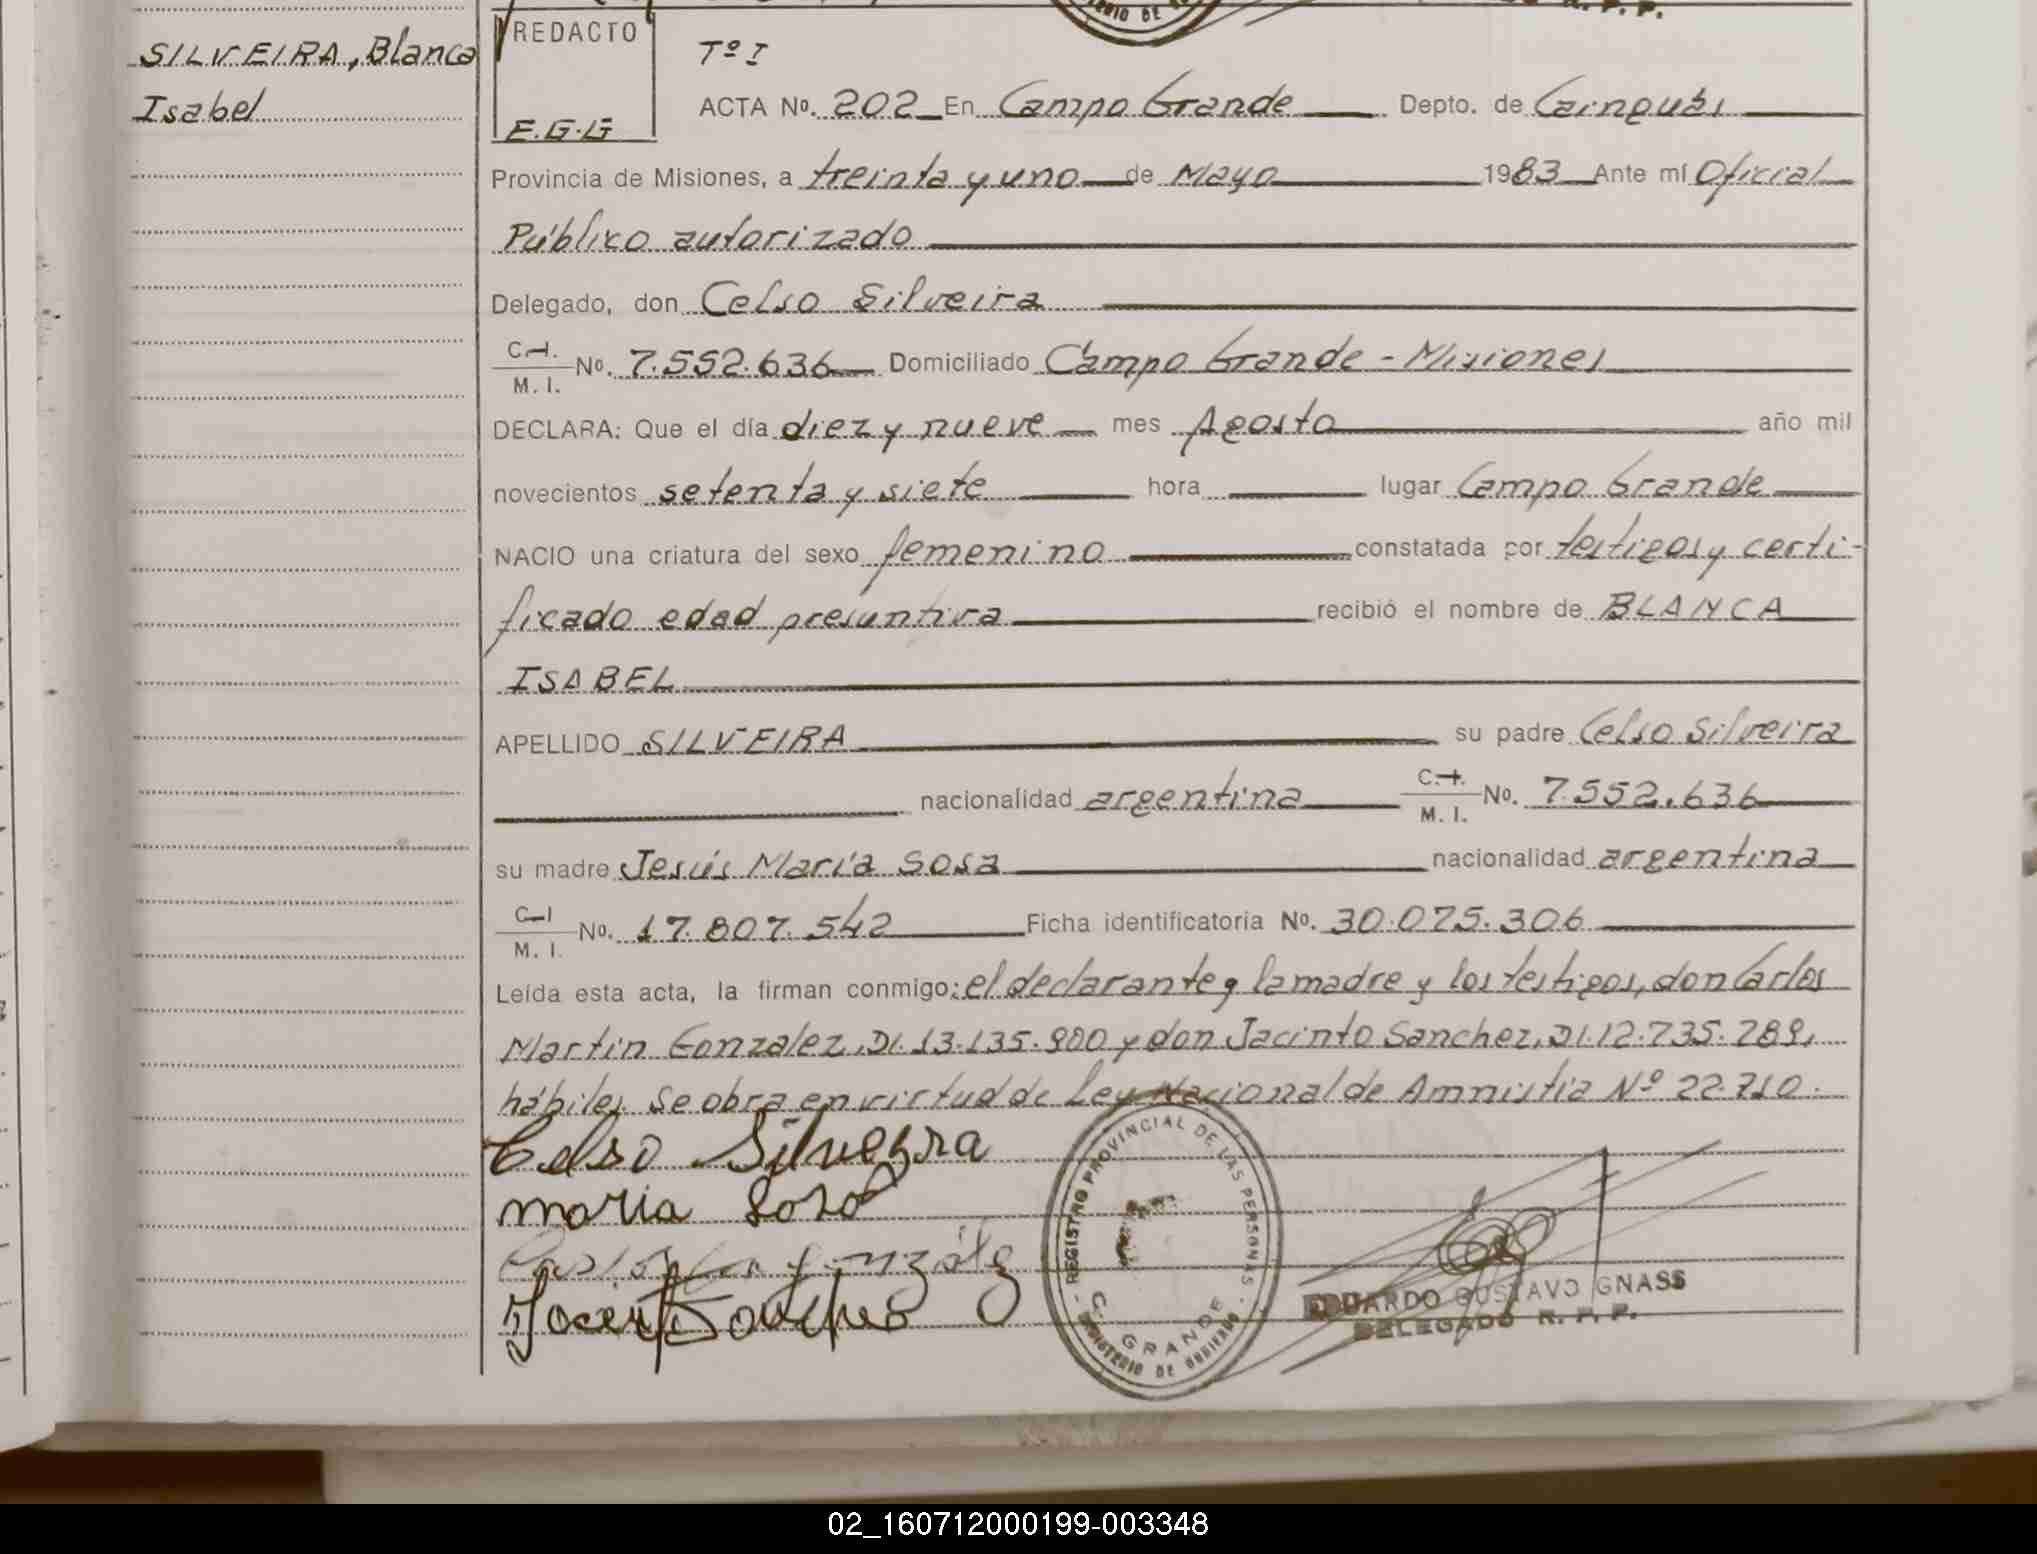 SILVEIRA, Blanca
Isabel
REDACTO
E.G.G
Tº I
ACTA Nº. 202 En Campo Grande Depto. de Cainguás
Provincia de Misiones, a treinta y uno de Mayo 1983 Ante mí Oficial
Público autorizado
Delegado, don Celso Silveira
C.I.
M. I. Nº. 7.552.636 Domiciliado Campo Grande - Misiones
DECLARA: Que el día diez y nueve mes Agosto año mil
novecientos setenta y siete hora lugar Campo Grande
NACIO una criatura del sexo femenino constatada por testigos y certi-
ficado edad presuntiva recibió el nombre de BLANCA
ISABEL
APELLIDO SILVEIRA su padre Celso Silveira
nacionalidad argentina C.I. M. I. Nº. 7.552.636
su madre Jesús María Sosa nacionalidad argentina
C.I
M. I. Nº. 17.807.542 Ficha identificatoria Nº. 30.075.306
Leída esta acta, la firman conmigo: el declarante y la madre y los testigos, don Carlos
Martin Gonzalez, DI. 13.135.900 y don Jacinto Sanchez, DI. 12.735.289,
hábiles. Se obra en virtud de Ley Nacional de Amnistía Nº 22.710.
Celso Silveyra
maria Sosa
REGISTRO PROVINCIAL DE LAS PERSONAS
C. GRANDE
MINISTERIO DE GOBIERNO
EDUARDO GUSTAVO GNASS
DELEGADO R. P. P.
02_160712000199-003348